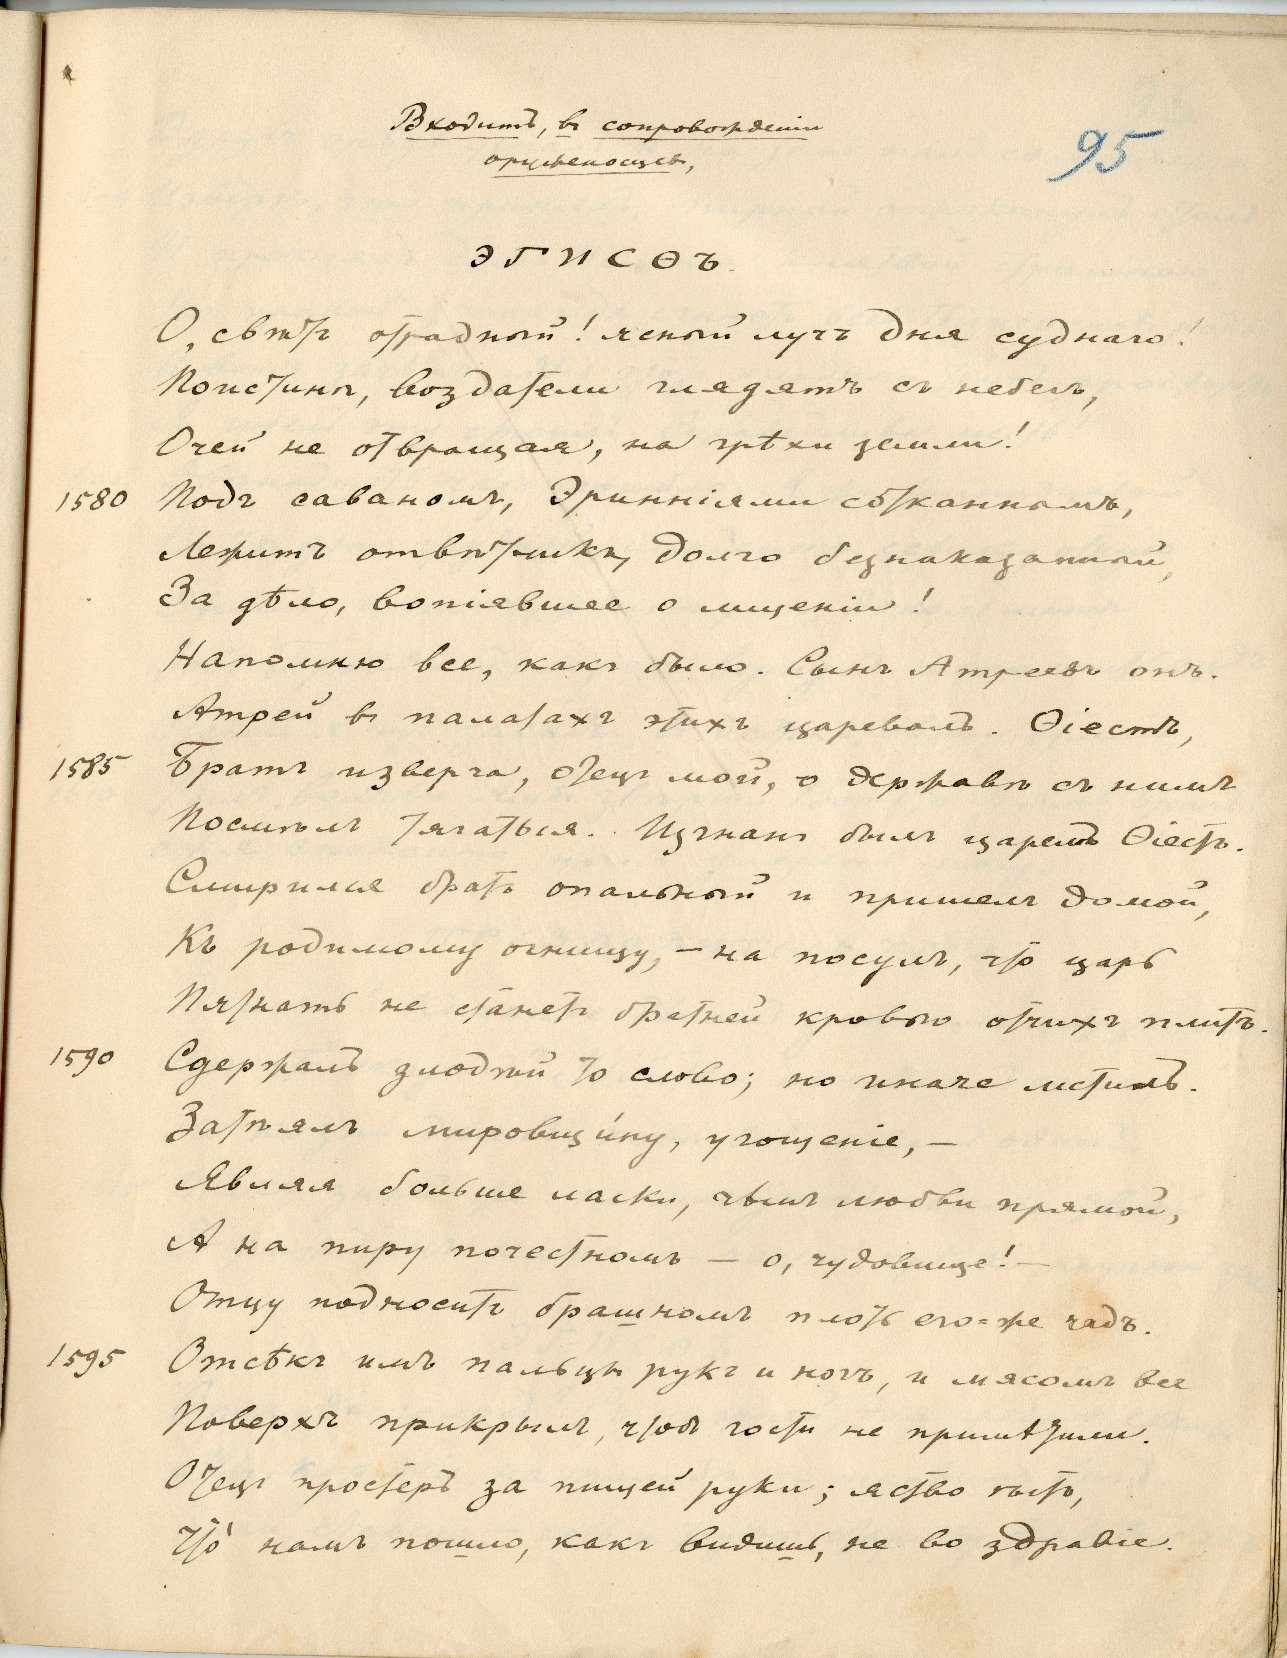 Входитъ, въ сопровожденіи
оруженосцевъ,
95
ЭГИСѲЪ.
О, свѣтъ отрадный! ясный лучъ дня суднаго!
Поистинѣ, воздатели глядятъ съ небесъ,
Очей не отвращая, на грѣхи земли!
1580 Подъ саваномъ, Эринніями сотканнымъ,
Лежитъ отвѣтчикъ, долго безнаказанный,
За дѣло, вопіявшее о мщеніи!
Напомню все, какъ было. Сынъ Атреевъ онъ.
Атрей въ палатахъ этихъ царевалъ. Ѳіестъ,
1585 Братъ изверга, отецъ мой, о державѣ съ нимъ
Посмѣлъ тягаться. Изгнанъ былъ царемъ Ѳіестъ.
Смирился братъ опальный и пришелъ домой,
Къ родимому огнищу, – на посулъ, что царь
Пятнать не станетъ братней кровью отчихъ плитъ.
1590 Сдержалъ злодѣй то слово; но иначе мстилъ.
Затѣялъ мировщи́ну, угощеніе, –
Являя больше ласки, чѣмъ любви прямой,
А на пиру почестномъ – о, чудовище! –
Отцу подноситъ брашномъ плоть его-же чадъ.
1595 Отсѣкъ имъ пальцы рукъ и ногъ, и мясомъ все
Поверхъ прикрылъ, чтобъ гости не примѣтили.
Отецъ простеръ за пищей руки; яство ѣстъ,
Что́ намъ пошло, какъ видишь, не во здравіе.